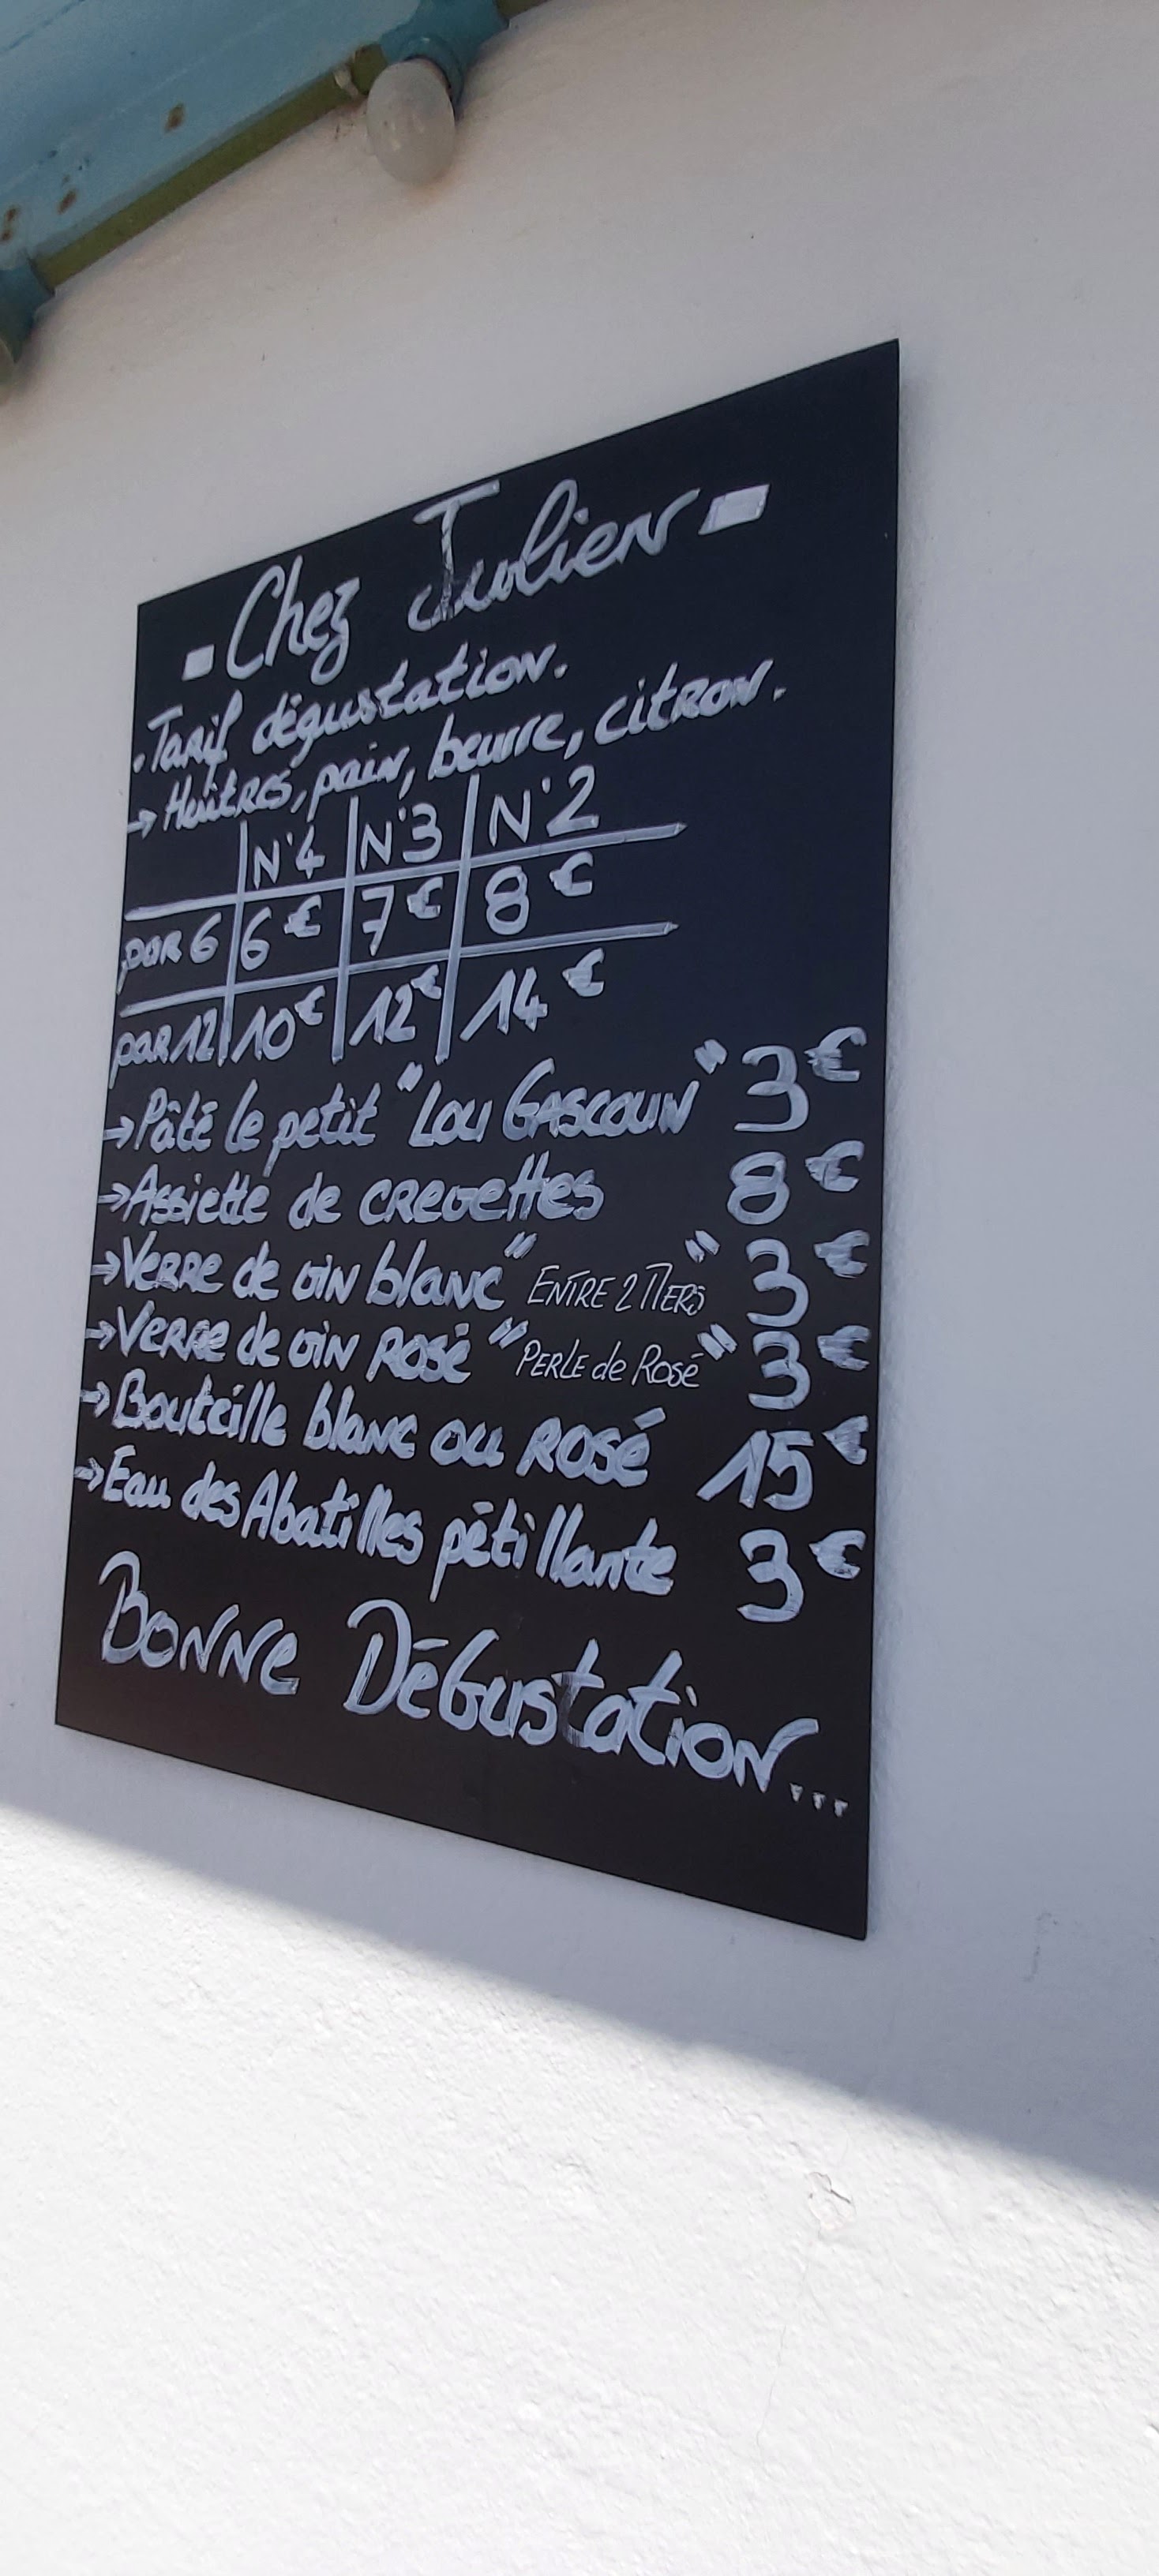 - Chez Julien -
. Tarif dégustation.
→ Huîtres, pain, beurre, citron.
N°4 N°3 N°2
par 6 6€ 7€ 8€
par 12 10€ 12€ 14€
→ Pâté le petit "Lou Gascoun" 3€
→ Assiette de crevettes 8€
→ Verre de vin blanc "ENTRE 2 MERS" 3€
→ Verre de vin Rosé "PERLE de Rosé" 3€
→ Bouteille blanc ou Rosé 15€
→ Eau des Abatilles pétillante 3€
Bonne Dégustation...